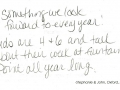 "Something we look
forward to every year.
do are 4 + 6 and talk
out their week at
Point all year long.
Stephanie & John, Oxford,